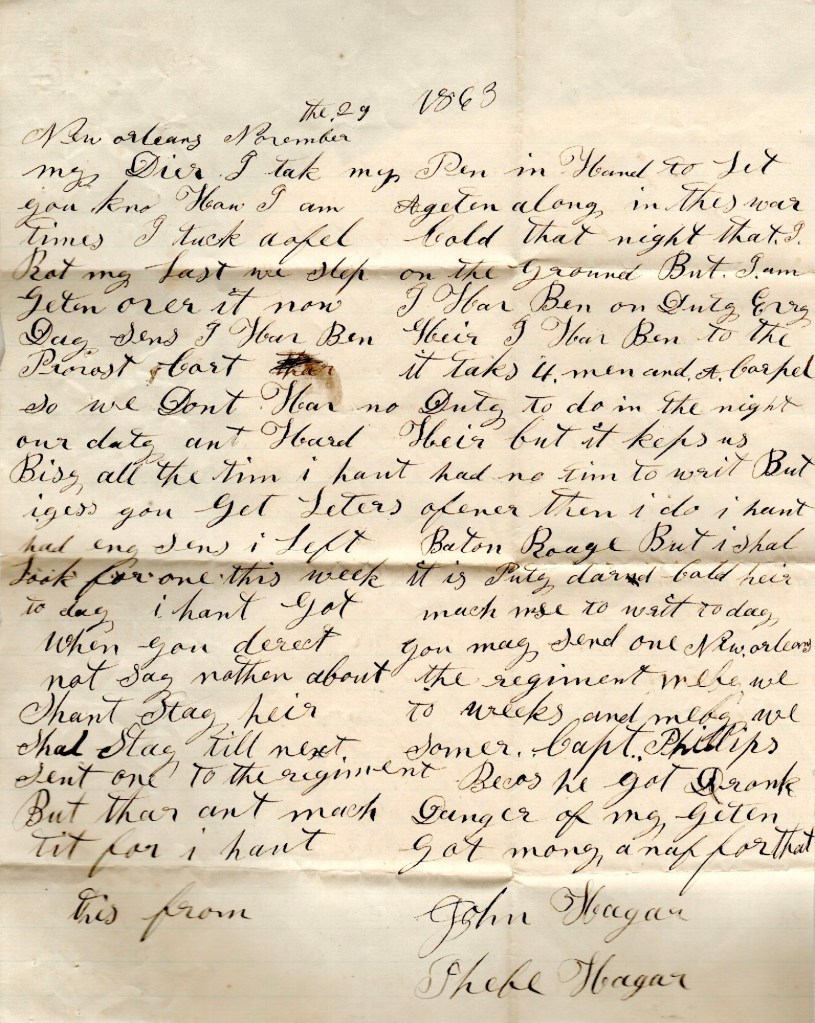 the 29 1863
New orleans November
my Dier I tak my Pen in Hand to Let
you kno Haw I am Ageten along in thes war
times I tuck aofel Cold that night that I.
Rot my Last we slep on the Ground But. I am
Geten over it now I Hav Ben on Duty Evry
Day sens I Hav Ben Heir I Hav Ben to the
Provost Cort it taks 4. men and A. Corpel
so we Dont Hav no Duty to do in the night
our duty ant Hard Heir but it keps us
Bisy all the tim i hant had no tim to writ But
i gess you Get Leters ofener then i do i hant
had eny sens i Left Baton Roage But i shal
Look for one this week it is Puty darnd Cold heir
to day i hant Got mach use to writ to day
When you derect you may send one New. orleans
not say nothen about the regiment mebe we
Shant Stay heir to weeks and meby we
Shal Stay till next somer. Capt. Phillips
sent one to the regiment Becos he got Dronk
But thar ant mach Danger of my Geten
tit for i hant Got mony anaf for that
this from John Hagar
Phebe Hagar